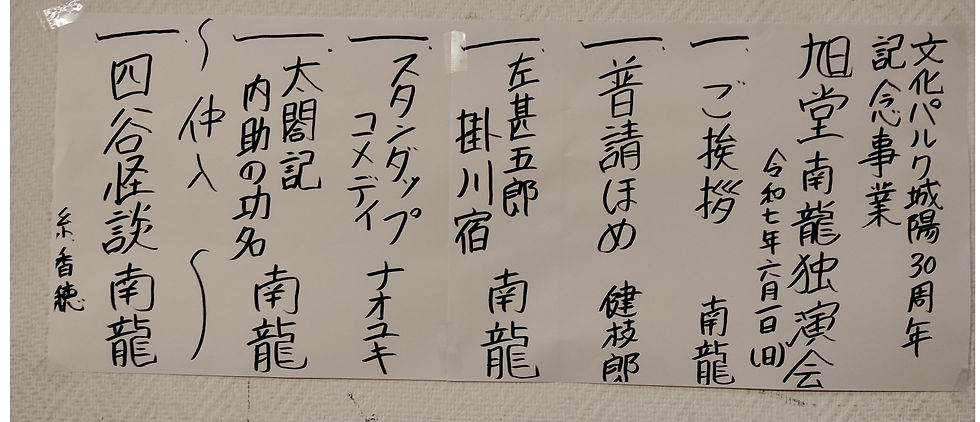 文化パルク城陽30周年
記念事業
旭堂南龍独演会
令和七年六月一日(日)
一 ご挨拶 南龍
一 普請ほめ 健枝郎
一 左甚五郎
掛川宿 南龍
一 スタンダップ
コメディ ナオユキ
一 太閤記
内助の功名 南龍
〜 仲入 〜
一 四谷怪談 南龍
糸 香穂